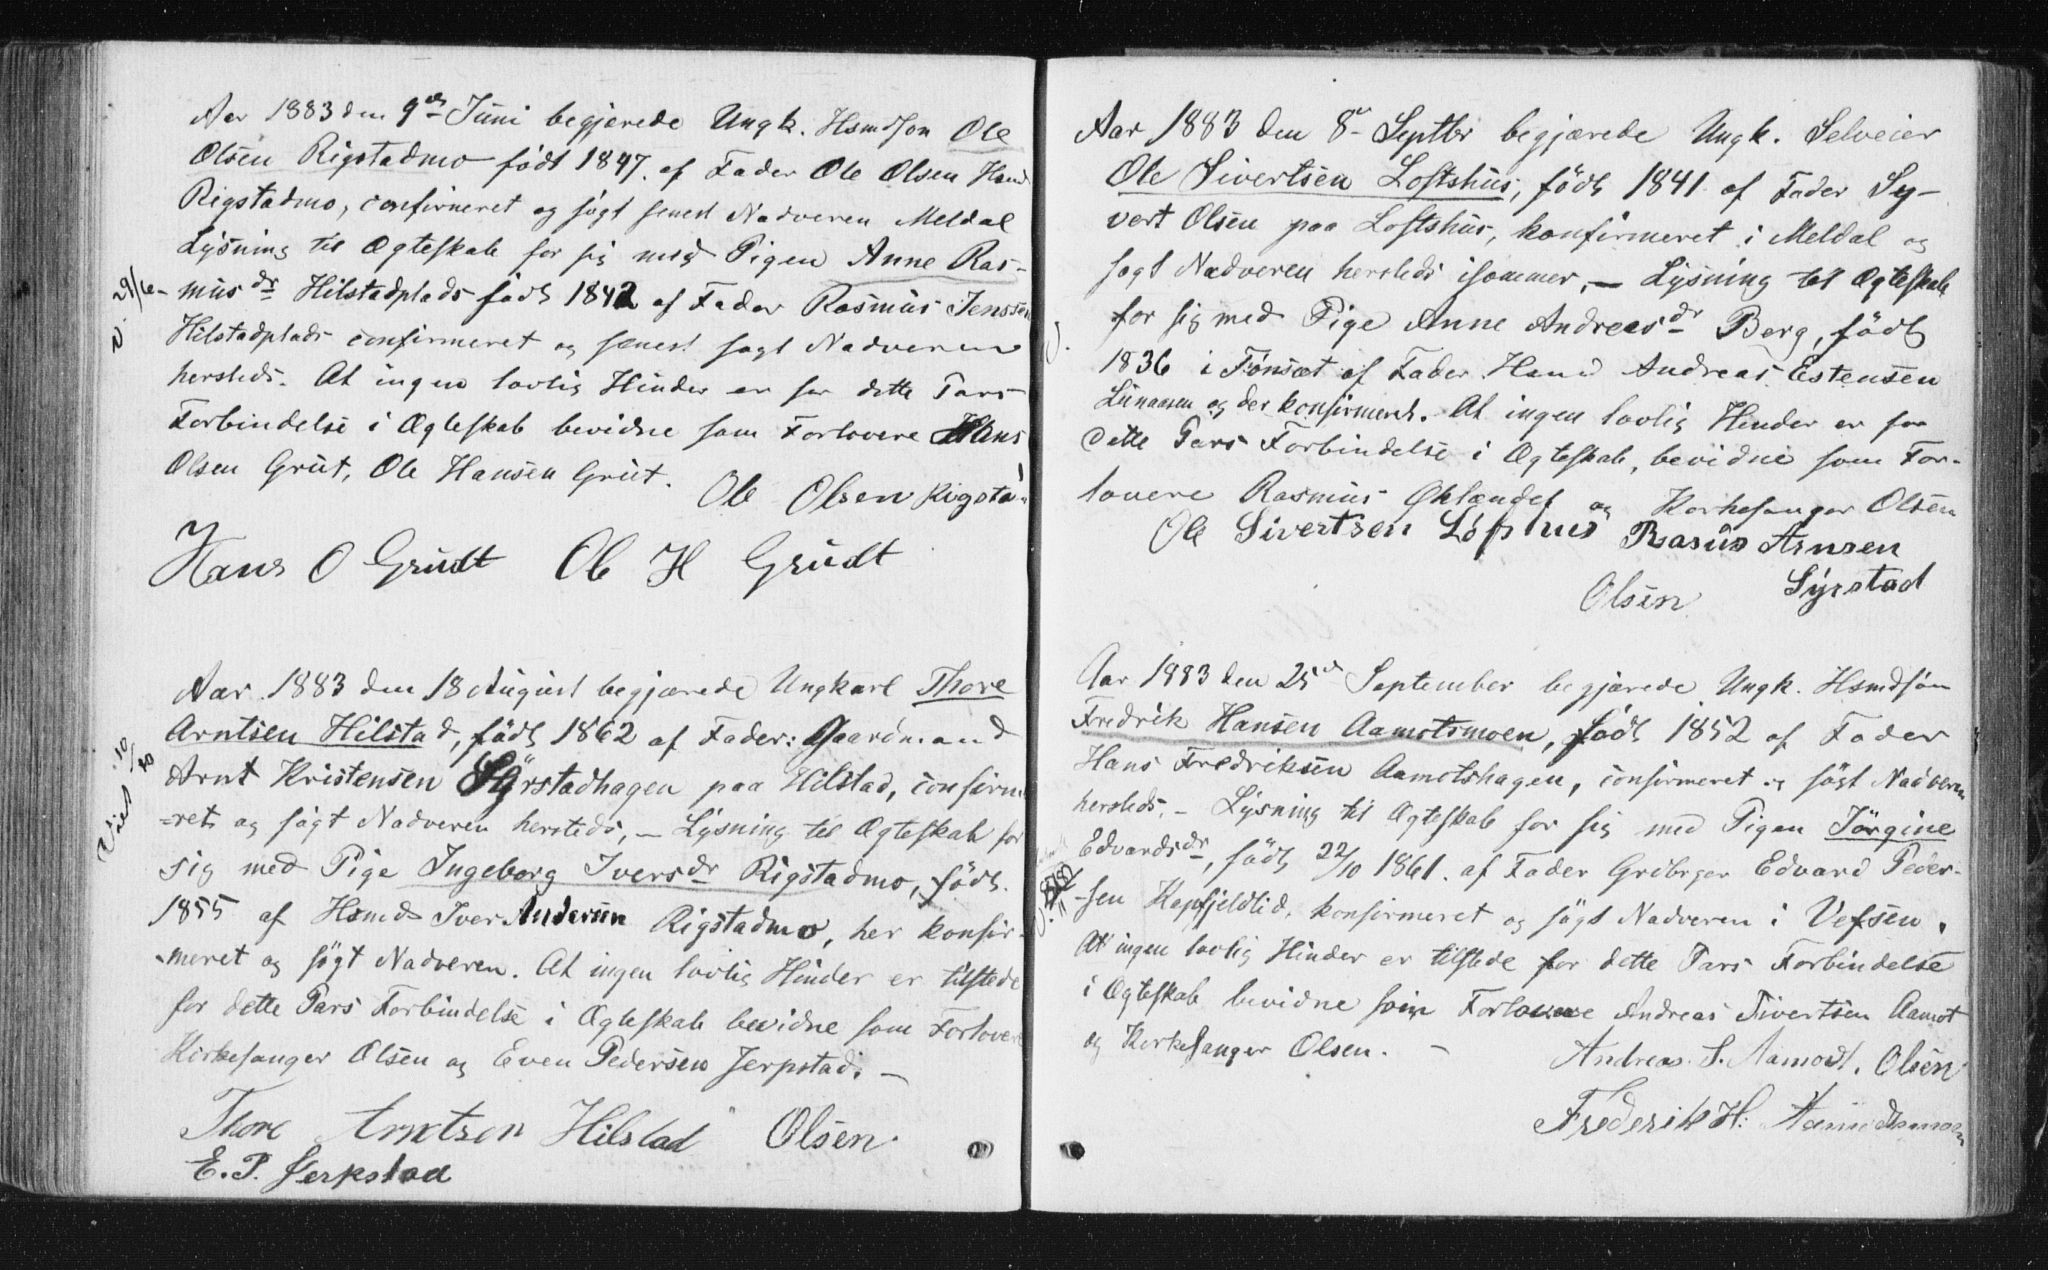 Aar 1883 den 9de Juni begjærede Ungk. Hsmdsøn Ole
Olsen Rigstadmo født 1847. af Fader Ole Olsen Hsmd
Rigstadmo, confirmeret og søgt senest Nadveren Meldal
Lysning til Ægteskab for sig med Pigen Anne Ras-
v. 29/6 - mus dr Hilstadplads født 1842 af Fader Rasmus Jenssen
Hilstadplads confirmeret og senest søgt Nadveren
hersteds. At ingen lovlig Hinder er for dette Pars
Forbindelse i Ægteskab bevidne som Forlovere Hans
Olsen Grut, Ole Hansen Grut.
Ole Olsen Rigsta
Hans O Grudt Ole H Grudt
Aar 1883 den 18 August begjærede Ungkarl Thore
Arntsen Hilstad, født 1862 af Fader: Gaardmand
Viet 10/10
Arnt Kristensen Sørstadhagen paa Hilstad, confirme
=ret og søgt Nadveren hersteds, – Lysning til Ægteskab for
sig med Pige Ingeborg Ivers dr Rigstadmo, født
1855 af Hsmd Iver Andersen Rigstadmo, her konfir-
meret og søgt Nadveren. At ingen lovlig Hinder er tilstede
for dette Pars Forbindelse i Ægteskab bevidne som Forlovere
Kirkesanger Olsen og Even Pedersen Jerpstad. –
Thore Arntsen Hilstad Olsen.
E. P. Jerpstad
Aar 1883 den 8de Septbr begjærede Ungk. Selveier
Ole Sivertsen Loftshus, født 1841 af Fader Sy-
vert Olsen paa Loftshus, konfirmeret i Meldal og
søgt Nadveren hersteds isommer, – Lysning til Ægteskab
for sig med Pige Anne Andreas dr Berg, født
v.
1836 i Tønset af Fader Hsmd Andreas Estensen
Lunaasen og der konfirmeret. At ingen lovlig Hinder er for
dette Pars Forbindelse i Ægteskab, bevidne som For-
lovere Rasmus og Kirkesanger Olsen
Ole Sivertsen Løfshus Rasmus Arnsen
Olsen Syrstad
Aar 1883 den 25de September begjærede Ungk. Hsmdsøn
Fredrik Hansen Aamotsmoen, født 1852 af Fader
Hans Fredriksen Aamotshagen, confirmeret og søgt Nadveren
hersteds. – Lysning til Ægteskab for sig med Pigen Jörgine
Edvards dr, født 22/10 1861. af Fader Grdbrger Edvard Peder-
sen Kapfjeldlid, konfirmeret og søgt Nadveren i Vefsen.
At ingen lovlig Hinder er tilstede for dette Pars Forbindelse
i Ægteskab bevidne som Forlovere Andreas Sivertsen Aamot
og Kirkesanger Olsen. –
Andreas S. Aamodt. Olsen
Frederik H: Aamodtsmoen